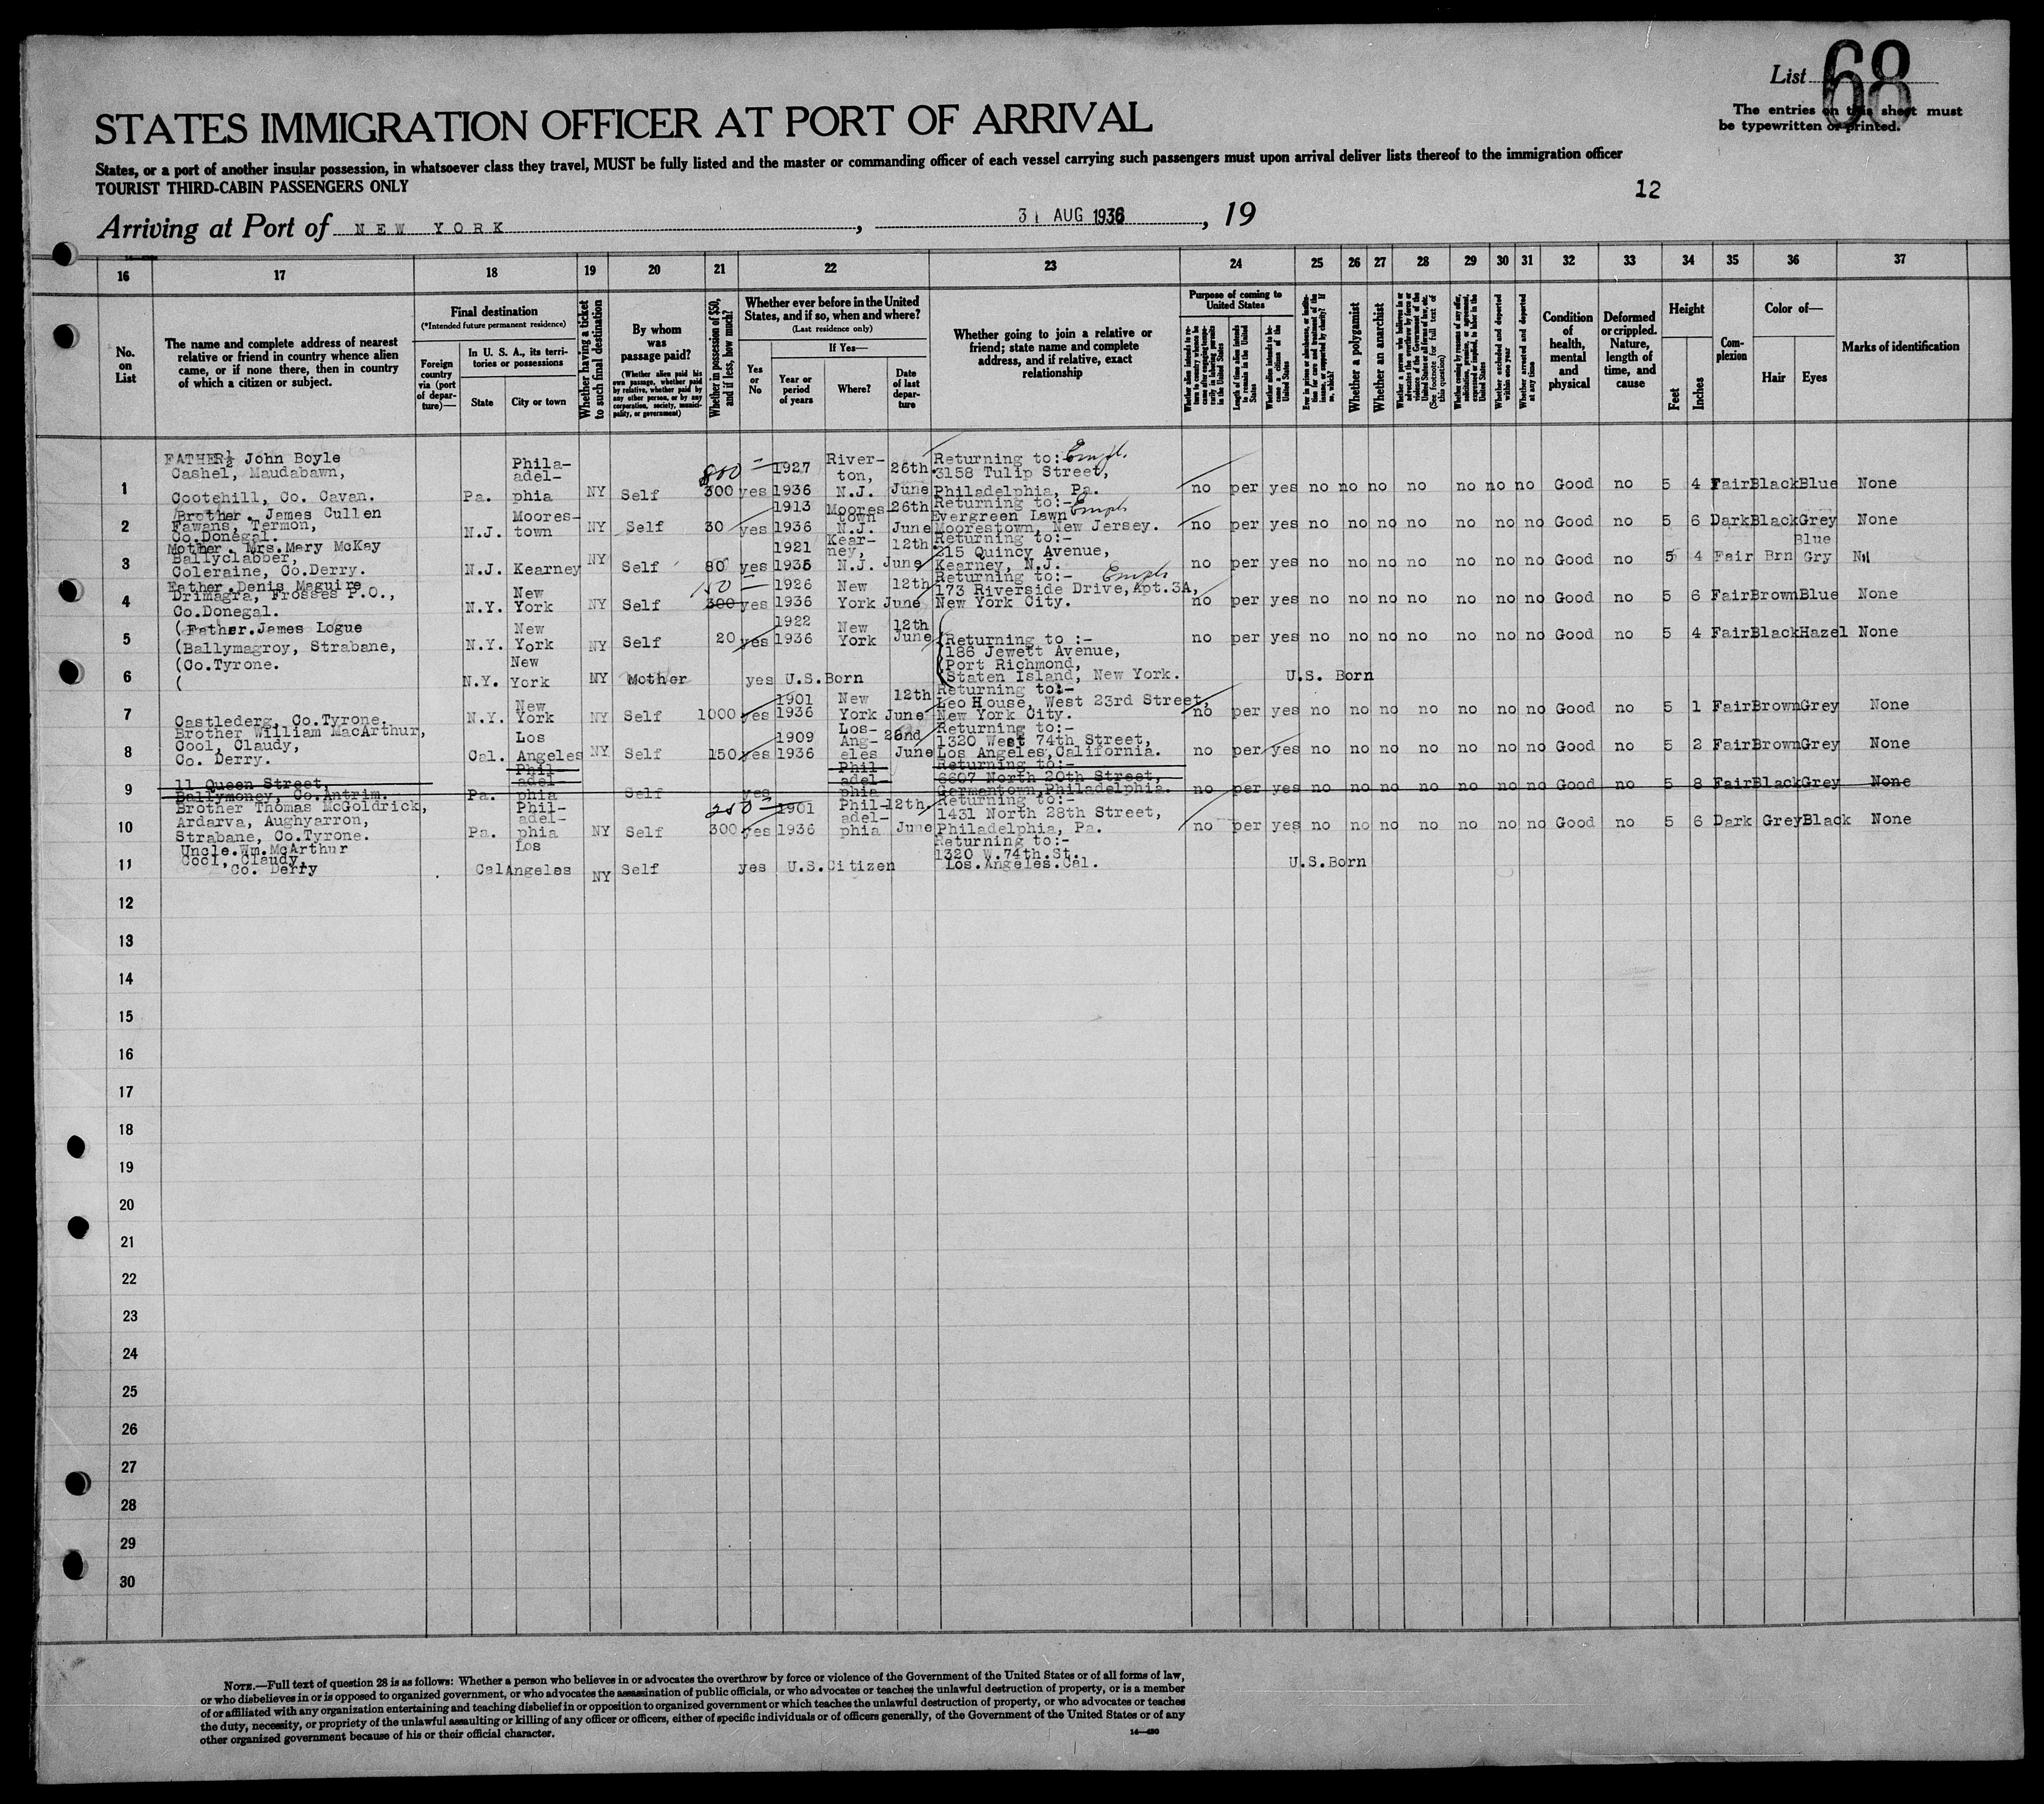 List 68
The entries on this sheet must
be typewritten or printed.
STATES IMMIGRATION OFFICER AT PORT OF ARRIVAL
States, or a port of another insular possession, in whatsoever class they travel, MUST be fully listed and the master or commanding officer of each vessel carrying such passengers must upon arrival deliver lists thereof to the immigration officer
TOURIST THIRD-CABIN PASSENGERS ONLY
12
Arriving at Port of NEW YORK, 31 AUG 1936, 19
16 17 18 19 20 21 22 23 24 25 26 27 28 29 30 31 32 33 34 35 36 37
No. on List
The name and complete address of nearest
relative or friend in country whence alien
came, or if none there, then in country
of which a citizen or subject.
Final destination
(*Intended future permanent residence)
Foreign country via (port of departure)—
In U. S. A., its territories or possessions
State
City or town
Whether having a ticket to such final destination
By whom was passage paid?
(Whether alien paid his own passage, whether paid by relative, whether paid by any other person, or by any corporation, society, municipality, or government)
Whether in possession of $50, and if less, how much?
Whether ever before in the United
States, and if so, when and where?
(Last residence only)
Yes or No
If Yes—
Year or period of years
Where?
Date of last departure
Whether going to join a relative or
friend; state name and complete
address, and if relative, exact
relationship
Purpose of coming to United States
Whether alien intends to return to country whence he came after engaging temporarily in laboring pursuits in the United States
Length of time alien intends to remain in the United States
Whether alien intends to become a citizen of the United States
Ever in prison or almshouse, or institution for care and treatment of the insane, or supported by charity? If so, which?
Whether a polygamist
Whether an anarchist
(See footnote for full text of this question)
Whether excluded and deported within one year
Whether arrested and deported at any time
Condition of health, mental and physical
Deformed or crippled. Nature, length of time, and cause
Height
Feet
Inches
Complexion
Color of—
Hair
Eyes
Marks of identification
FATHER½ John Boyle
Cashel, Maudabawn,
1 Cootehill, Co. Cavan. Pa. Phila-adel-phia NY Self 800 300 yes 1927 1936 River-ton, N.J. 26th June Returning to: Empl.
3158 Tulip Street,
Philadelphia, Pa. no per yes no no no no no no no Good no 5 4 Fair Black Blue None
Brother. James Cullen
2 Fawans, Termon,
Co.Donegal. N.J. Moores-town NY Self 30 yes 1913 1936 Moores-town N.J. 26th June Returning to:- Empl
Evergreen Lawn
Moorestown, New Jersey. no per yes no no no no no no no Good no 5 6 Dark Black Grey None
Mother. Mrs.Mary McKay
Ballyclabber,
3 Coleraine, Co.Derry. N.J. Kearney NY Self 80 yes 1921 1936 Kear-ney, N.J. 12th June Returning to:-
215 Quincy Avenue,
Kearney, N.J. no per yes no no no no no no no Good no 5 4 Fair Brn Blue Gry Nil
Father.Denis Maguire
4 Drimagra, Frosses P.O.,
Co.Donegal. N.Y. New York NY Self 150 300 yes 1926 1936 New York 12th June Returning to:- Empl
173 Riverside Drive,Apt.3A,
New York City. no per yes no no no no no no no Good no 5 6 Fair Brown Blue None
(Father.James Logue
5 (Ballymagroy, Strabane,
(Co.Tyrone. N.Y. New York NY Self 20 yes 1922 1936 New York 12th June (Returning to :-
(186 Jewett Avenue,
(Port Richmond,
(Staten Island, New York. no per yes no no no no no no no Good no 5 4 Fair Black Hazel None
6 ( N.Y. New York NY Mother yes U.S.Born U.S. Born
7 Castlederg, Co.Tyrone. N.Y. New York NY Self 1000 yes 1901 1936 New York 12th June Returning to:-
Leo House, West 23rd Street,
New York City. no per yes no no no no no no no Good no 5 1 Fair Brown Grey None
Brother William MacArthur,
8 Cool, Claudy,
Co. Derry. Cal. Los Angeles NY Self 150 yes 1909 1936 Los-Ang-eles 22nd June Returning to:-
1320 West 74th Street,
Los Angeles,California. no per yes no no no no no no no Good no 5 2 Fair Brown Grey None
9 11 Queen Street,
Ballymoney, Co.Antrim. Pa. Phil-adel-phia Self yes Phil-adel-phia Returning to:-
6607 North 20th Street,
Germantown,Philadelphia. no per yes no no no no no no no Good no 5 8 Fair Black Grey None
Brother Thomas McGoldrick,
10 Ardarva, Aughyarron,
Strabane, Co.Tyrone. Pa. Phil-adel-phia NY Self 250 300 yes 1901 1936 Phil-adel-phia 12th. June Returning to:-
1431 North 28th Street,
Philadelphia, Pa. no per yes no no no no no no no Good no 5 6 Dark Grey Black None
Uncle.Wm.McArthur
11 Cool, Claudy,
Co. Derry Cal Los Angeles NY Self yes U.S.Citizen Returning to:-
1320 W.74th.St.
Los.Angeles.Cal. U.S.Born
12
13
14
15
16
17
18
19
20
21
22
23
24
25
26
27
28
29
30
NOTE.—Full text of question 28 is as follows: Whether a person who believes in or advocates the overthrow by force or violence of the Government of the United States or of all forms of law,
or who disbelieves in or is opposed to organized government, or who advocates the assassination of public officials, or who advocates or teaches the unlawful destruction of property, or is a member
of or affiliated with any organization entertaining and teaching disbelief in or opposition to organized government or which teaches the unlawful destruction of property, or who advocates or teaches
the duty, necessity, or propriety of the unlawful assaulting or killing of any officer or officers, either of specific individuals or of officers generally, of the Government of the United States or of any
other organized government because of his or their official character.
14—430